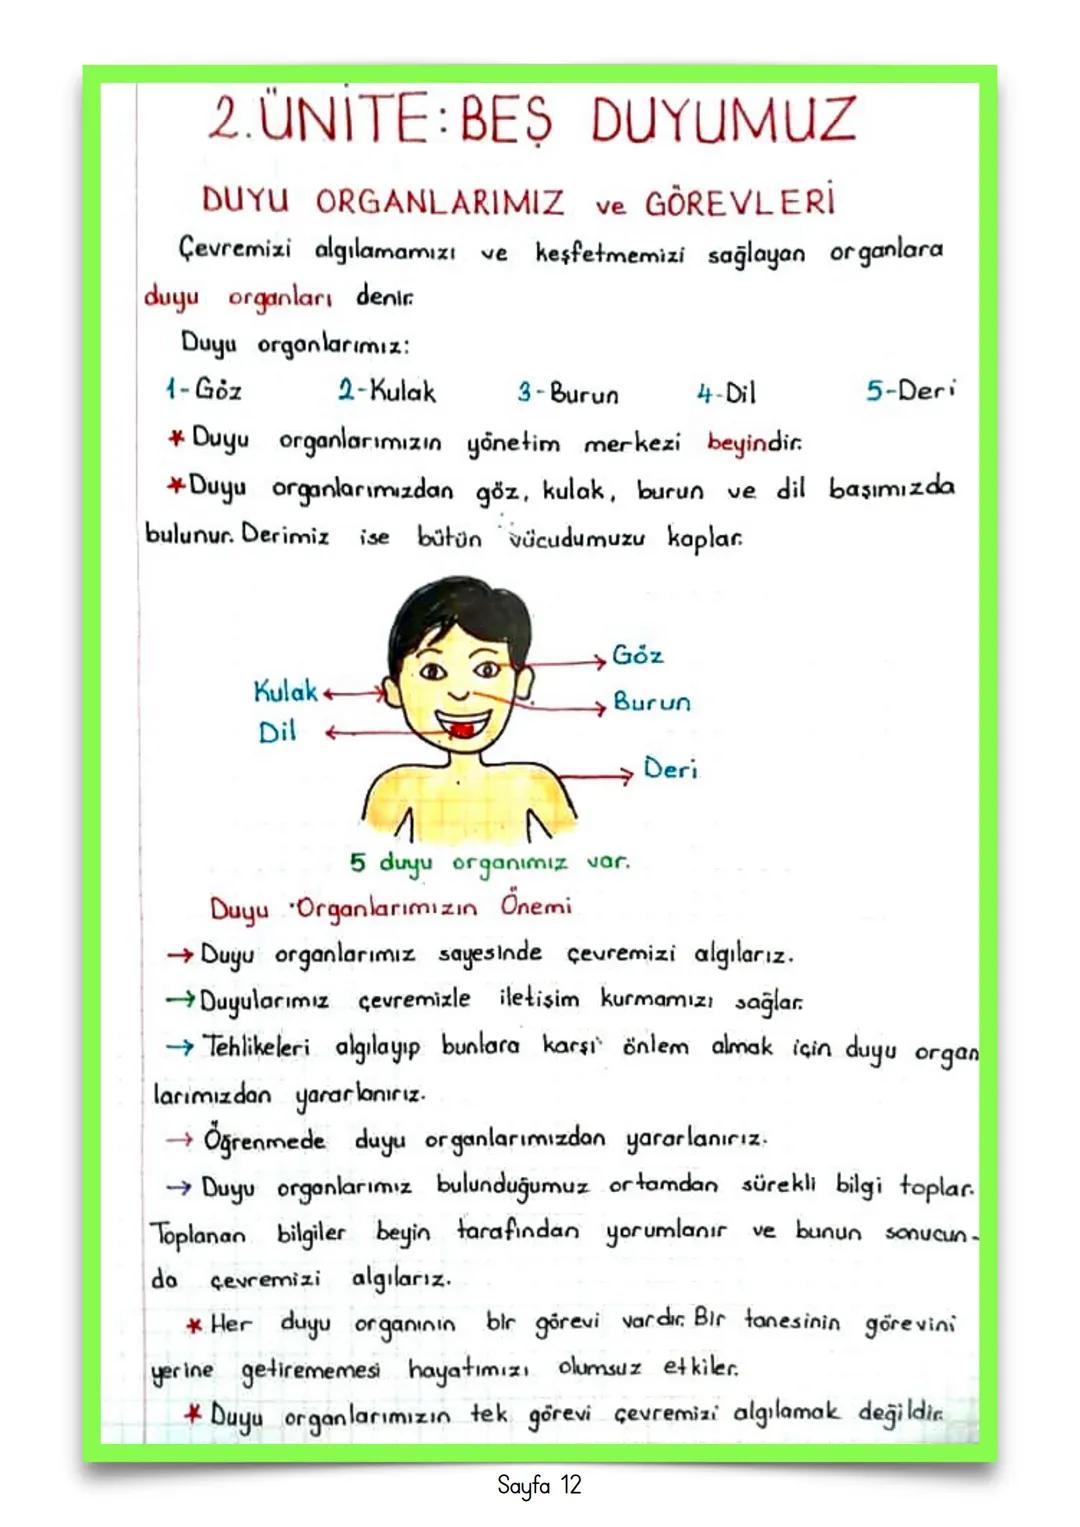 2.ÜNİTE: BEŞ DUYUMUZ
DUYU ORGANLARIMIZ ve GÖREVLERİ
Çevremizi algılamamızı ve keşfetmemizi sağlayan organlara
duyu organları denir.
Duyu organlarımız:
1-Göz 2-Kulak 3-Burun 4-Dil 5-Deri
* Duyu organlarımızın yönetim merkezi beyindir.
* Duyu organlarımızdan göz, kulak, burun ve dil başımızda
bulunur. Derimiz ise bütün vücudumuzu kaplar.
Göz
Kulak
Burun
Dil
Deri
5 duyu organımız var.
Duyu Organlarımızın Önemi
→ Duyu organlarımız sayesinde çevremizi algılarız.
→ Duyularımız çevremizle iletişim kurmamızı sağlar.
→ Tehlikeleri algılayıp bunlara karşı önlem almak için duyu organ
larımızdan yararlanırız.
→ Öğrenmede duyu organlarımızdan yararlanırız.
→ Duyu organlarımız bulunduğumuz ortamdan sürekli bilgi toplar.
Toplanan bilgiler beyin tarafından yorumlanır ve bunun sonucun-
da çevremizi algılarız.
* Her duyu organının bir görevi vardır. Bir tanesinin görevini
yerine getirememesi hayatımızı olumsuz etkiler.
* Duyu organlarımızın tek görevi çevremizi algılamak değildir.
Sayfa 12